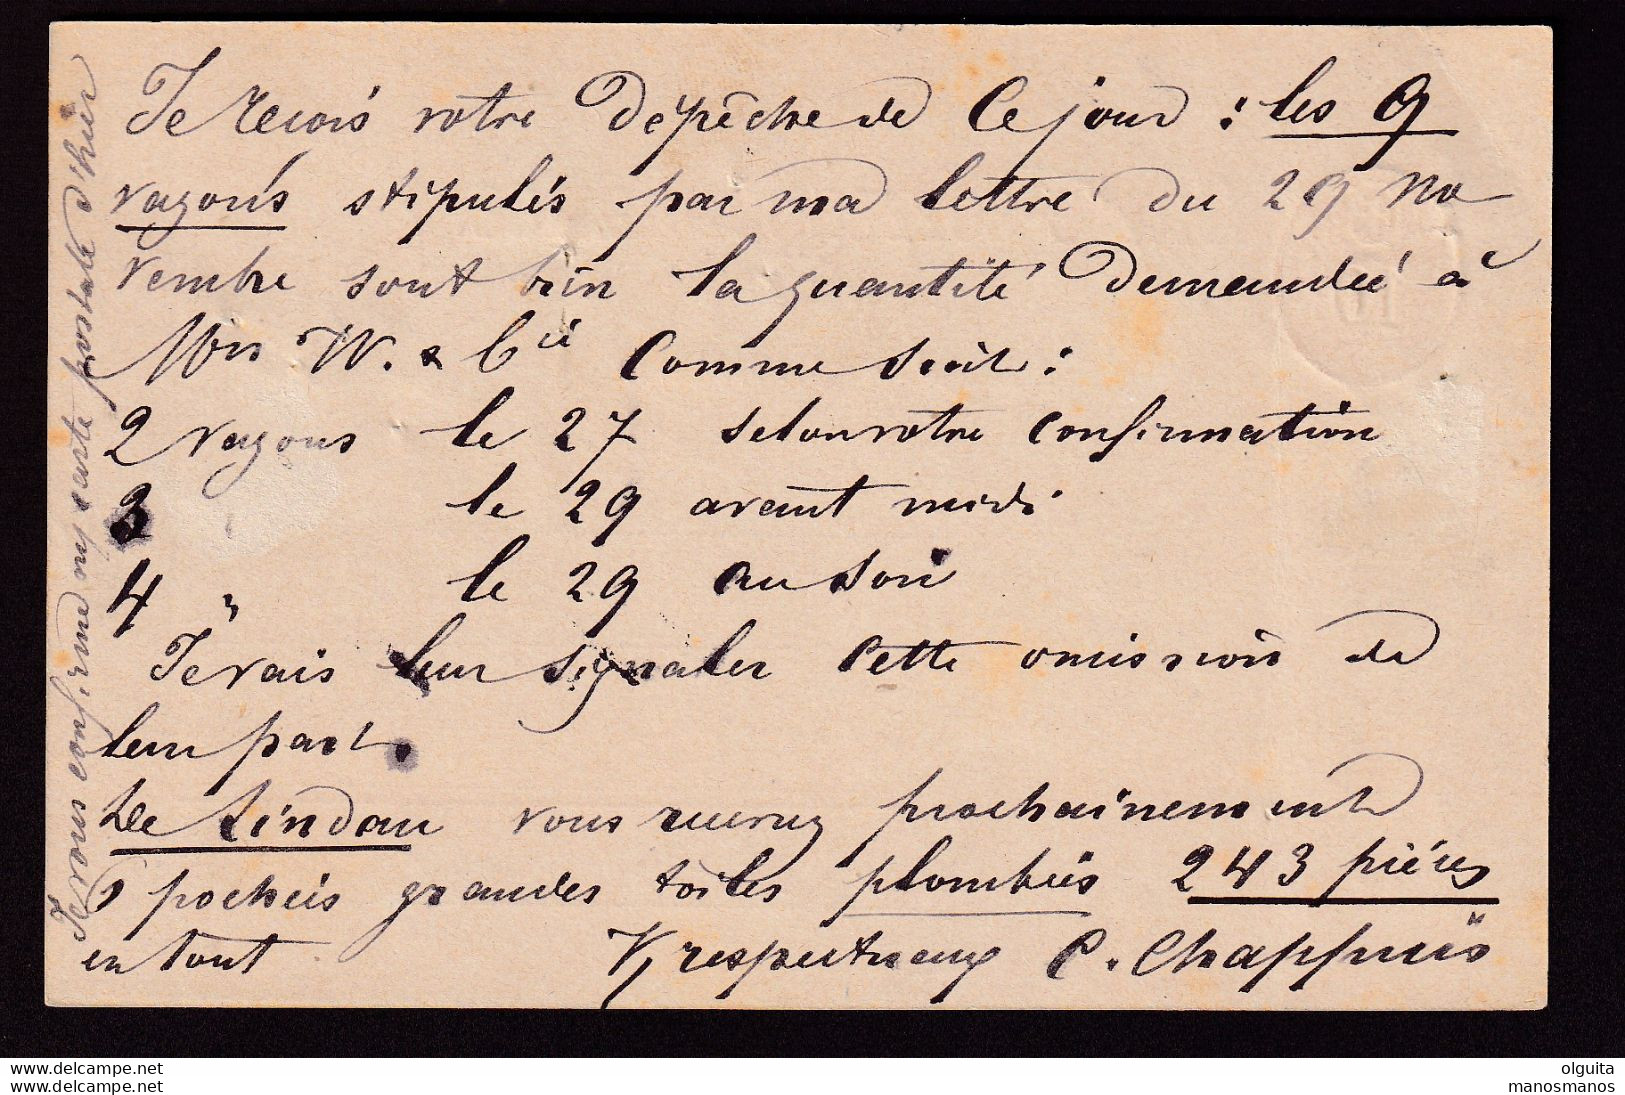 Je reçois votre dépêche de ce jour : les 9
vagons stipulés par ma lettre du 29 no
vembre sont bien la quantité demandée à
Mrs W. & Cie comme suit :
2 vagons le 27 selon votre confirmation
3 le 29 avant midi
4 " le 29 au soir
Je vais leur signaler cette omission de
leur part.
De Lindau vous recevrez prochainement
5 pochées grandes toiles plombées 243 pièces
en tout V/ respectueux C. Chappuis
Je vous confirme my carte postale d'hier
olguita
manosmanos
delcampe.net
delcampe.net